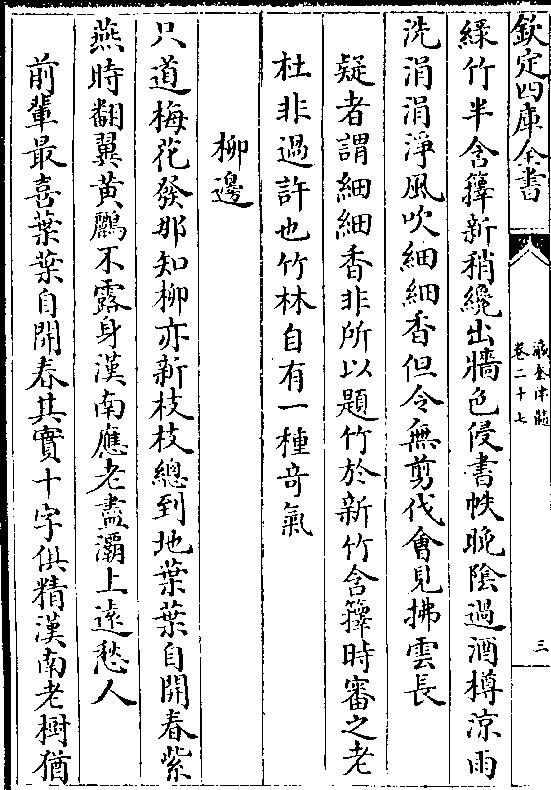 欽定四庫全書
瀛奎律髓
卷二十七
三
緑竹半含籜新稍纔出牆色侵書帙晚陰過酒樽涼雨
洗涓涓淨風吹細細香但令無剪伐會見拂雲長
疑者謂細細香非所以題竹於新竹含籜時審之老
杜非過許也竹林自有一種竒氣
柳邊
只道梅花發那知柳亦新枝枝總到地葉葉自開春紫
燕時翻翼黄鸝不露身漢南應老盡灞上逺愁人
前輩最喜葉葉自開春其實十字俱精漢南老樹猶